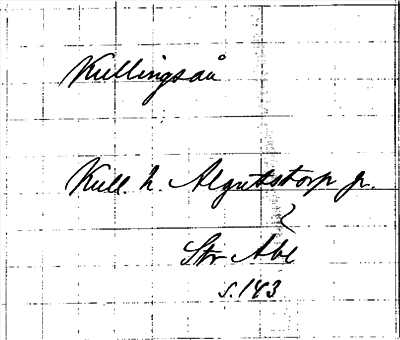 Kullingsåu
Kull. h. Algutstorp fr.
Str Abl
s. 143